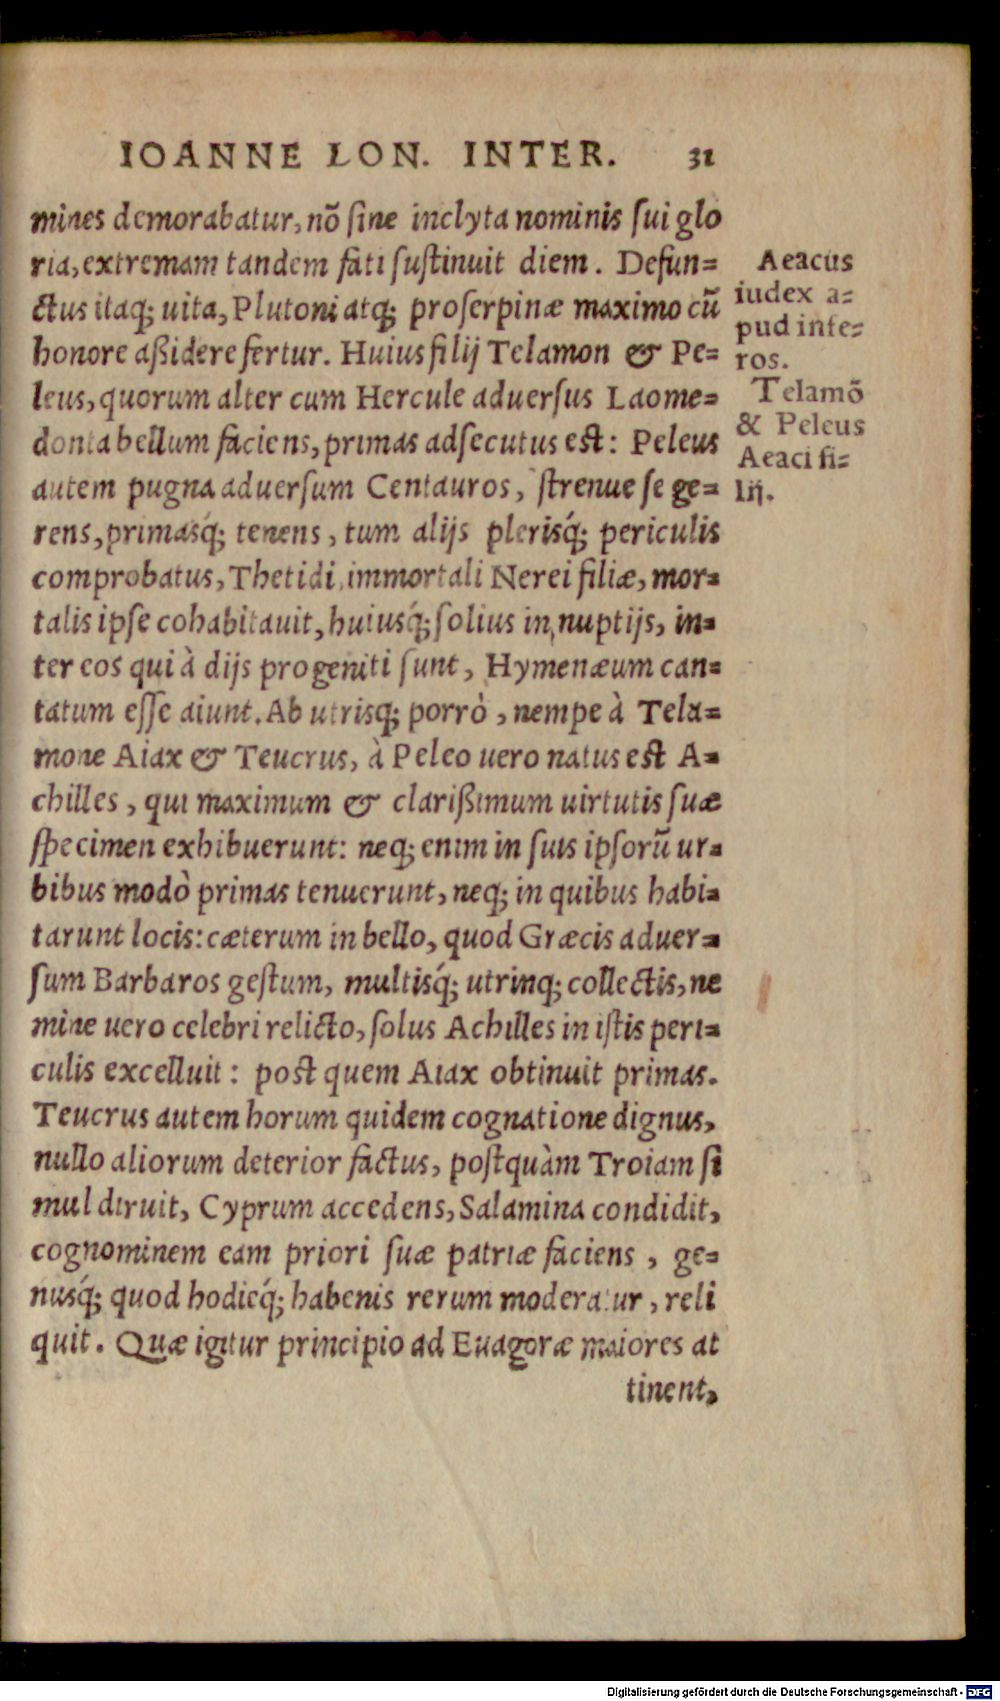 IOANNE LON. INTER. 31
mines demorabatur, nõ sine inclyta nominis sui glo
ria, extremam tandem fati sustinuit diem. Defun=
ctus itaq; uita, Plutoni atq; proserpinæ maximo cũ
honore aßidere fertur. Huius filij Telamon & Pe=
leus, quorum alter cum Hercule aduersus Laome=
donta bellum faciens, primas adsecutus est: Peleus
autem pugna aduersum Centauros, strenue se ge=
rens, primasq́; tenens, tum alijs plerisq́; periculis
comprobatus, Thetidi immortali Nerei filiæ, mor=
talis ipse cohabitauit, huiusq́; solius in nuptijs, in=
ter eos qui à dijs progeniti sunt, Hymenæum can=
tatum esse aiunt. Ab utrisq; porrò, nempe à Tela=
mone Aiax & Teucrus, à Peleo uero natus est A=
chilles, qui maximum & clarißimum uirtutis suæ
specimen exhibuerunt: neq; enim in suis ipsorũ ur=
bibus modò primas tenuerunt, neq; in quibus habi=
tarunt locis: cæterum in bello, quod Græcis aduer=
sum Barbaros gestum, multisq́; utrinq; collectis, ne
mine uero celebri relicto, solus Achilles in istis peri=
culis excelluit: post quem Aiax obtinuit primas.
Teucrus autem horum quidem cognatione dignus,
nullo aliorum deterior factus, postquàm Troiam si
mul diruit, Cyprum accedens, Salamina condidit,
cognominem eam priori suæ patriæ faciens, ge=
nusq́; quod hodieq́; habenis rerum moderatur, reli
quit. Quæ igitur principio ad Euagoræ maiores at
tinent,
Aeacus
iudex a=
pud infe=
ros.
Telamõ
& Peleus
Aeaci fi=
lij.
Digitalisierung gefördert durch die Deutsche Forschungsgemeinschaft - DFG